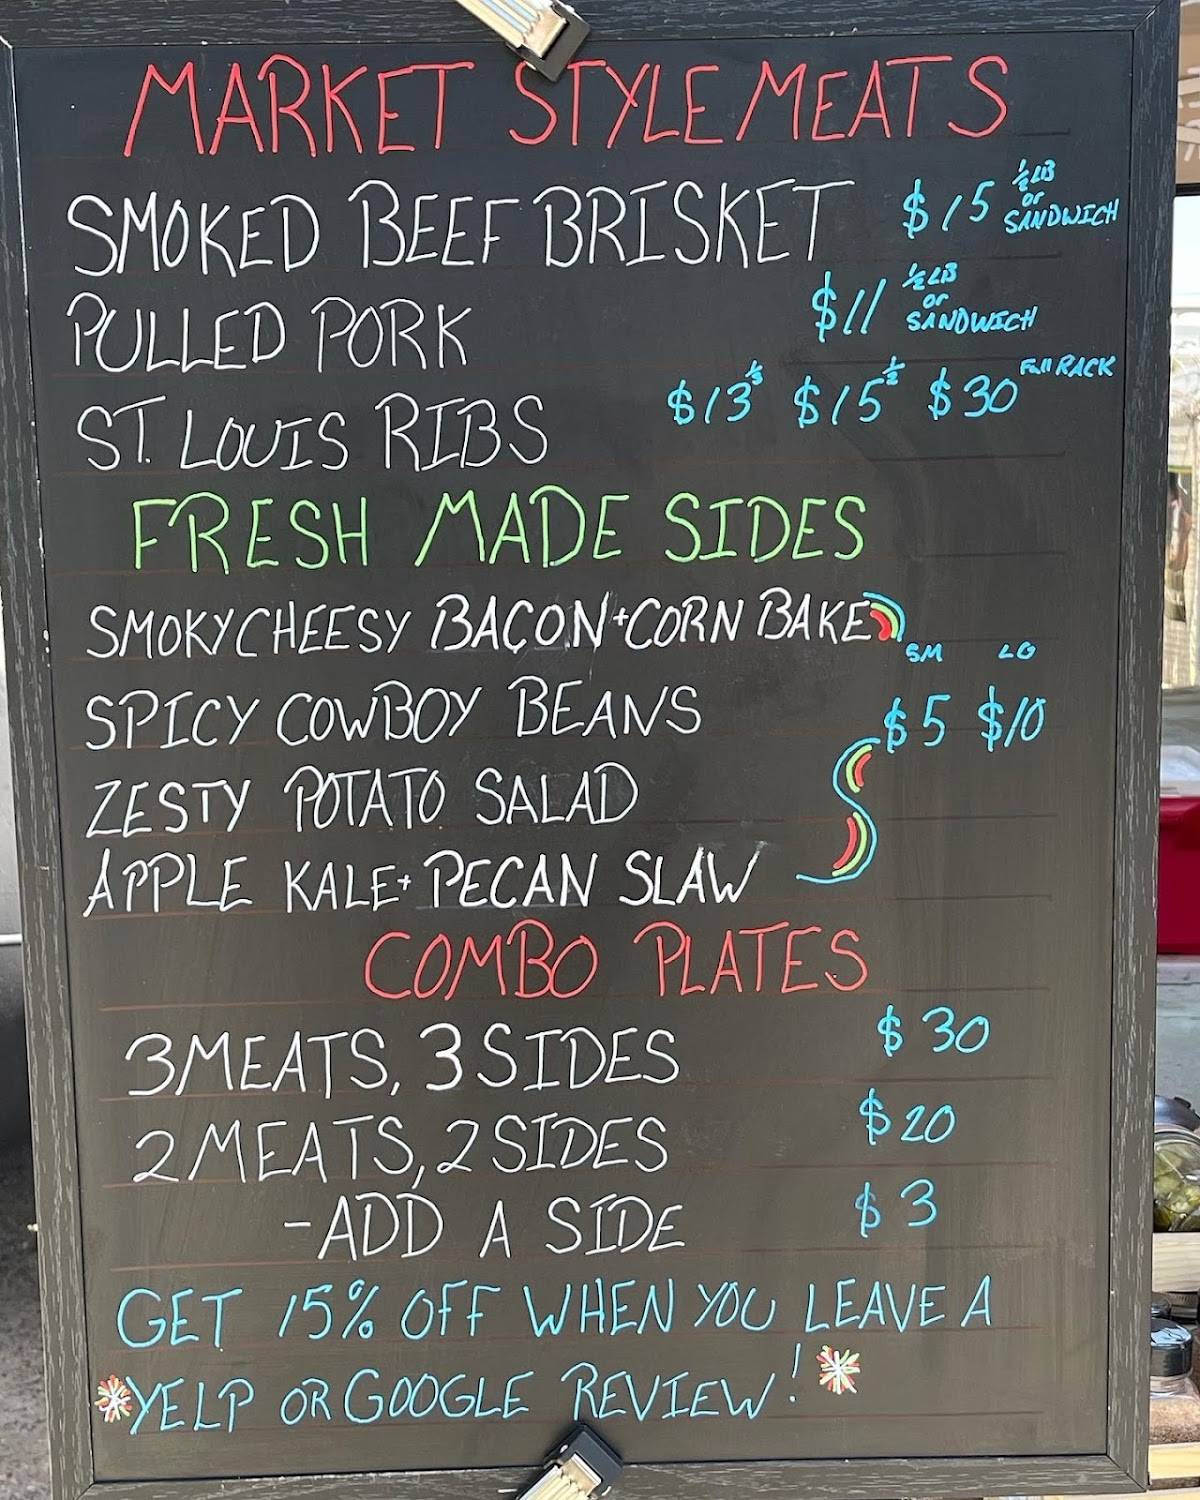 MARKET STYLE MEATS
SMOKED BEEF BRISKET $15 ½ LB or SANDWICH
PULLED PORK $11 ½ LB or SANDWICH
ST. LOUIS RIBS $13 ⅓ $15 ½ $30 Full RACK
FRESH MADE SIDES
SMOKY CHEESY BACON + CORN BAKE
SM LG
SPICY COWBOY BEANS $5 $10
ZESTY POTATO SALAD
APPLE KALE + PECAN SLAW
COMBO PLATES
3 MEATS, 3 SIDES $30
2 MEATS, 2 SIDES $20
- ADD A SIDE $3
GET 15% OFF WHEN YOU LEAVE A
YELP OR GOOGLE REVIEW!